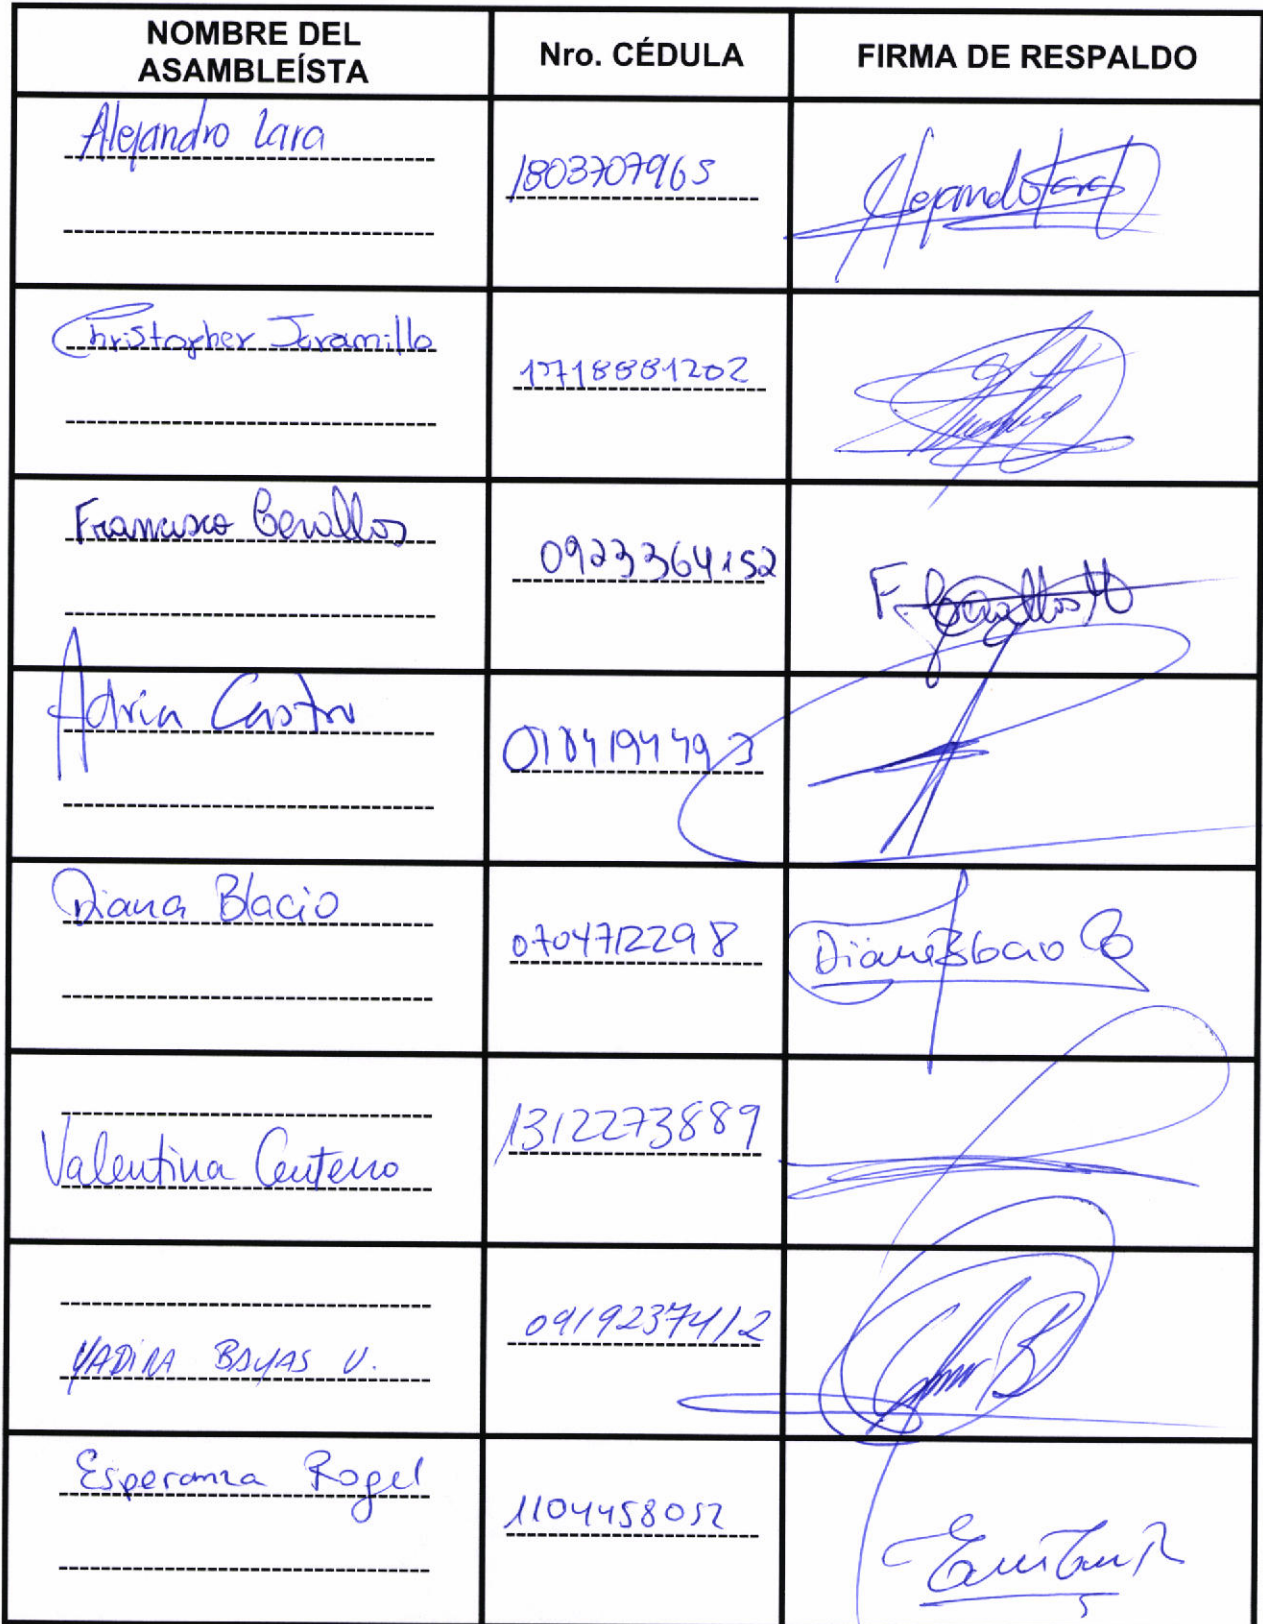 NOMBRE DEL
ASAMBLEÍSTA
Nro. CÉDULA
FIRMA DE RESPALDO
Alejandro Lara
1803707965
Alejandro Lara
Christopher Jaramillo
1718881202
Francisco Cevallos
0923364152
F. Cevallos M
Adrian Castro
0104194493
Diana Blacio
0704712298
Diana Blacio
Valentina Centeno
1312273889
YADIRA BAYAS U.
0919237412
Esperanza Rogel
1104458052